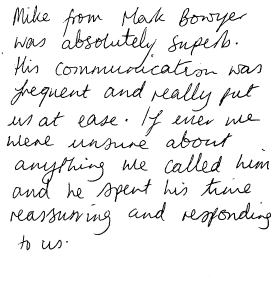 Mike from Mark Bowyer
was absolutely superb.
His communication was
frequent and really put
us at ease. If ever we
were unsure about
anything we called him
and he spent his time
reassurring and responding
to us.